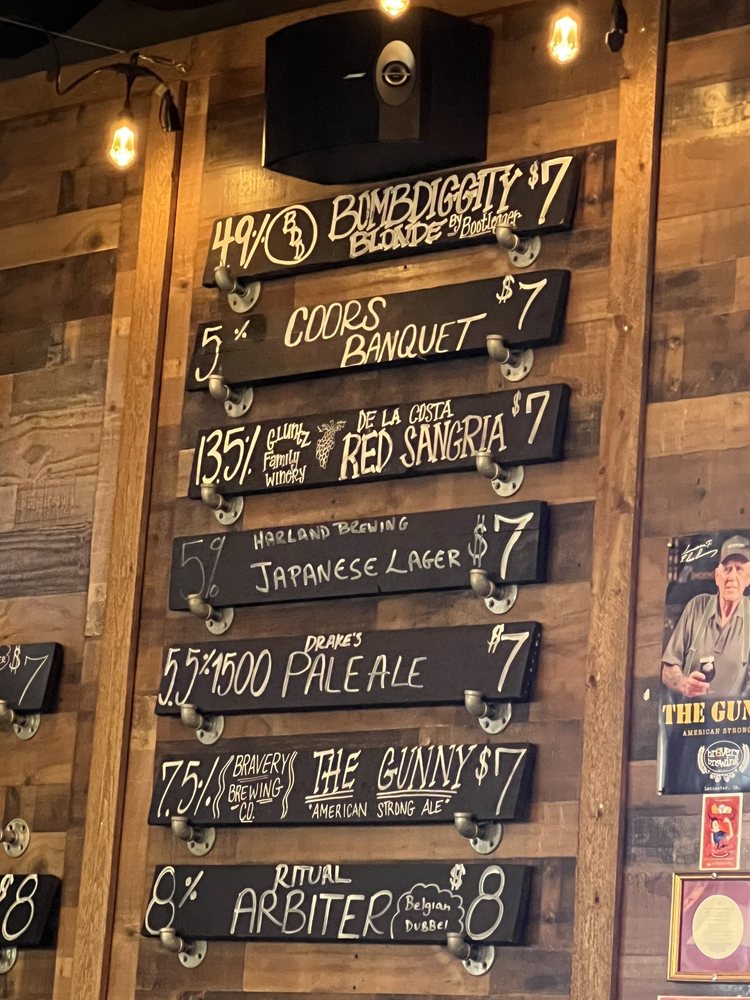 49% BD BOMBDIGGITY $7
BLONDE By Bootlegger
5% COORS $7
BANQUET
13.5% Gluntz Family Winery DE LA COSTA $7
RED SANGRIA
5% HARLAND BREWING $7
JAPANESE LAGER
5.5% 1500 DRAKE'S $7
PALE ALE
7.5% BRAVERY BREWING CO. THE GUNNY $7
"AMERICAN STRONG ALE"
8% RITUAL $8
ARBITER Belgian DUBBEL
$7
$8
THE GUN
AMERICAN STRONG
BRAVERY
BREWING
Lancaster, CA.